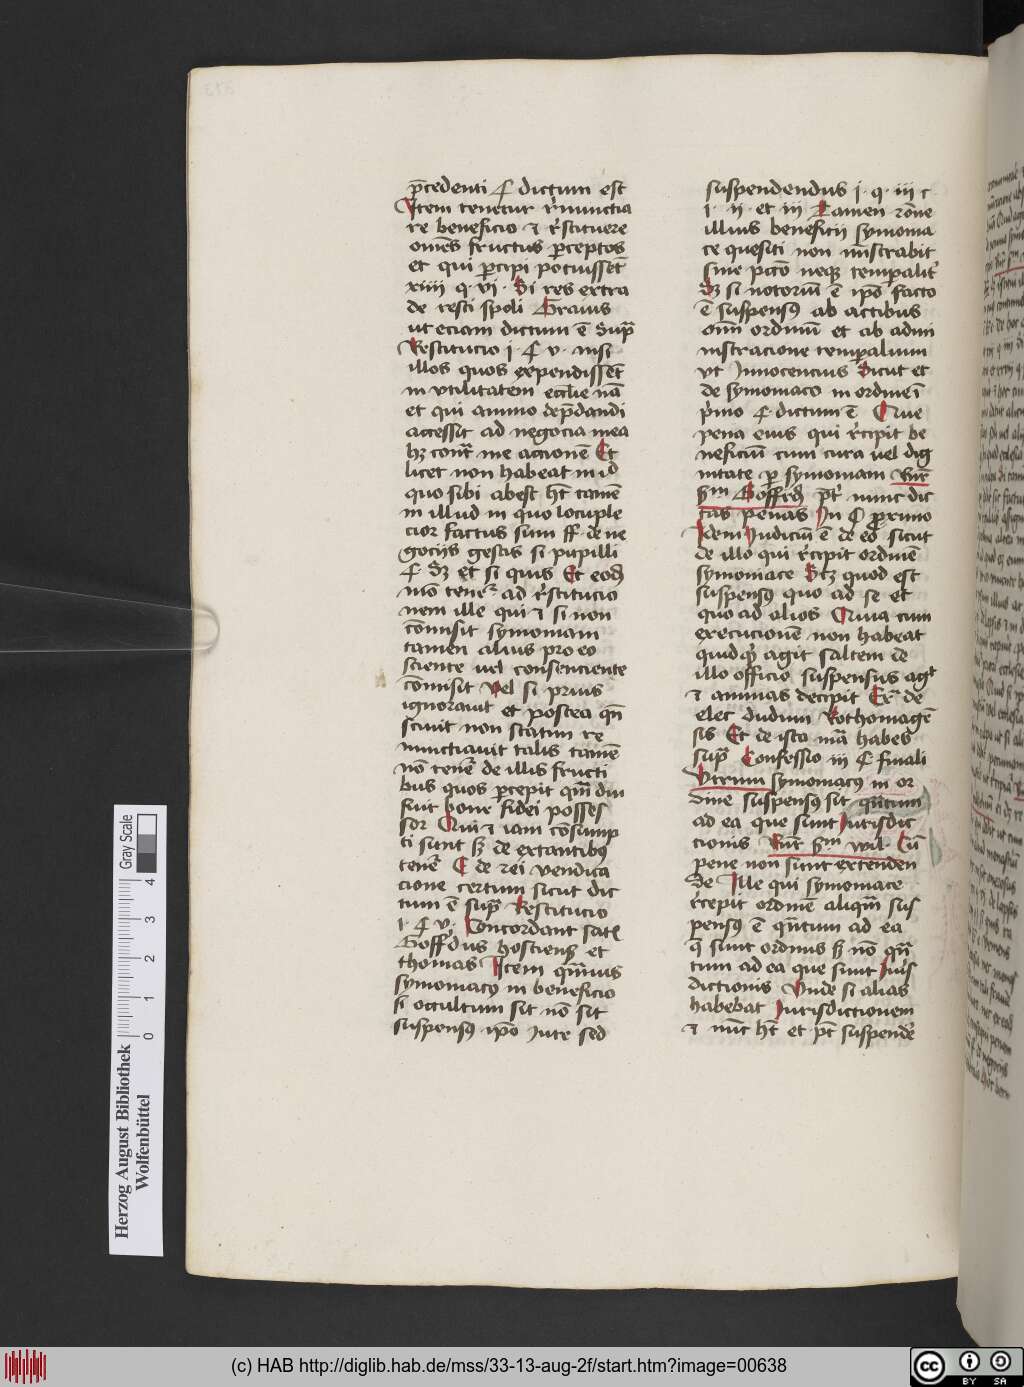 p̄cedenti § dictum est
Item tenetur r̓nunctia
re beneficio ⁊ r̓stituere
om̄es fructus p̱ceptos
et qui p̱cipi potuissent̄
xiiii q vi · Si res extra
de resti spoli Grauis
ut eciam dictum ē sup̄
Restitucio i · § v · nisi
illos quos expendissent̄
in vtilitatem eccl̄ie nā
et qui animo dep̄dandi
accessit ad negocia mea
hꝫ contr̄ me accionē Et
licet non habeat in id
quo sibi abest hȳ tamē
in illud in quo locuple
cior factus sum ff · de ne
gociis gestis si pupilli
§ Sꝫ et si quis Et eod̄
mō tener̄ ad r̓stitucio
nem ille qui ⁊ si non
cōmisit symoniam
tamen alius pro eo
sciente uel consenciente
cōmisit Vel si prius
ignorauit et postea qn̄
sciuit non statim re
nunctiauit talis tamē
nō tener̄ de illis fructi
bus quos p̱cepit qm̄ diu
fuit bone fidei posses
sor Qui ⁊ iam cōsump
ti sunt sꝫ de extantibꝰ
tener̄ § de rei vendica
cione certum sicut dic
tum ē sup̄ Restitucio
i · § v · Concordant
Goffr̄dus hostiens̄ et
thomas Item qm̄uis
symoniacꝰ in beneficio
si occultum sit nō sit
suspensꝰ ip̄o iure sed
suspendendus i · q · iii c
i · ii · et iii Tamen rōne
illius beneficii symonia
ce quesiti non mīstrabit
sine pctō neqꝫ temp̱alit̓
Sꝫ si notoriū ē ip̄o facto
ē suspensꝰ ab actibus
om̄ ordinū et ab admi
nistracione temp̱alium
vt Innocencius dicut et
de symoniaco in ordine ī
p̓mo § dictum ē Que
pena eius qui r̓cipit be
neficiū cum cura uel dig
nitate p̱ symoniam Rūr̄
s̄m Goffrd̄ pt̄ nunc dic
tas penas In § p̱ primo
Idem Iudiciū ē de eo sicut
de illo qui r̓cipit ordinē
symoniace Scꝫ quod est
suspensꝰ quo ad se et
quo ad alios Quia cum
execucionē non habeat
quidqd̓ agit saltem de
illo officio suspensus agit
⁊ animas decipit Ex̄ de
elec dudum Rothomagē
sis Et de ista mā habes
sup̄ Confessio iii § finali
Vtrum symoniacꝰ in or
dine suspensꝰ sit qn̄tum
ad ea que sunt Iurisdic
cionis Rūr̄ s̄m wil · Cū
pene non sunt extenden
de Ille qui symoniace
r̓cepit ordinē aliqm̄ sus
pensꝰ ē qn̄tum ad ea
q̄ sunt ordinis sꝫ nō qn̄
tum ad ea que sunt Iuris
dictionis Vnde si alias
habebat Iurisdictionem
⁊ nūc hȳ et pt̄ suspende̓
Herzog August Bibliothek
Wolfenbüttel
0 1 2 3 4
Gray Scale
(c) HAB http://diglib.hab.de/mss/33-13-aug-2f/start.htm?image=00638
cc BY SA